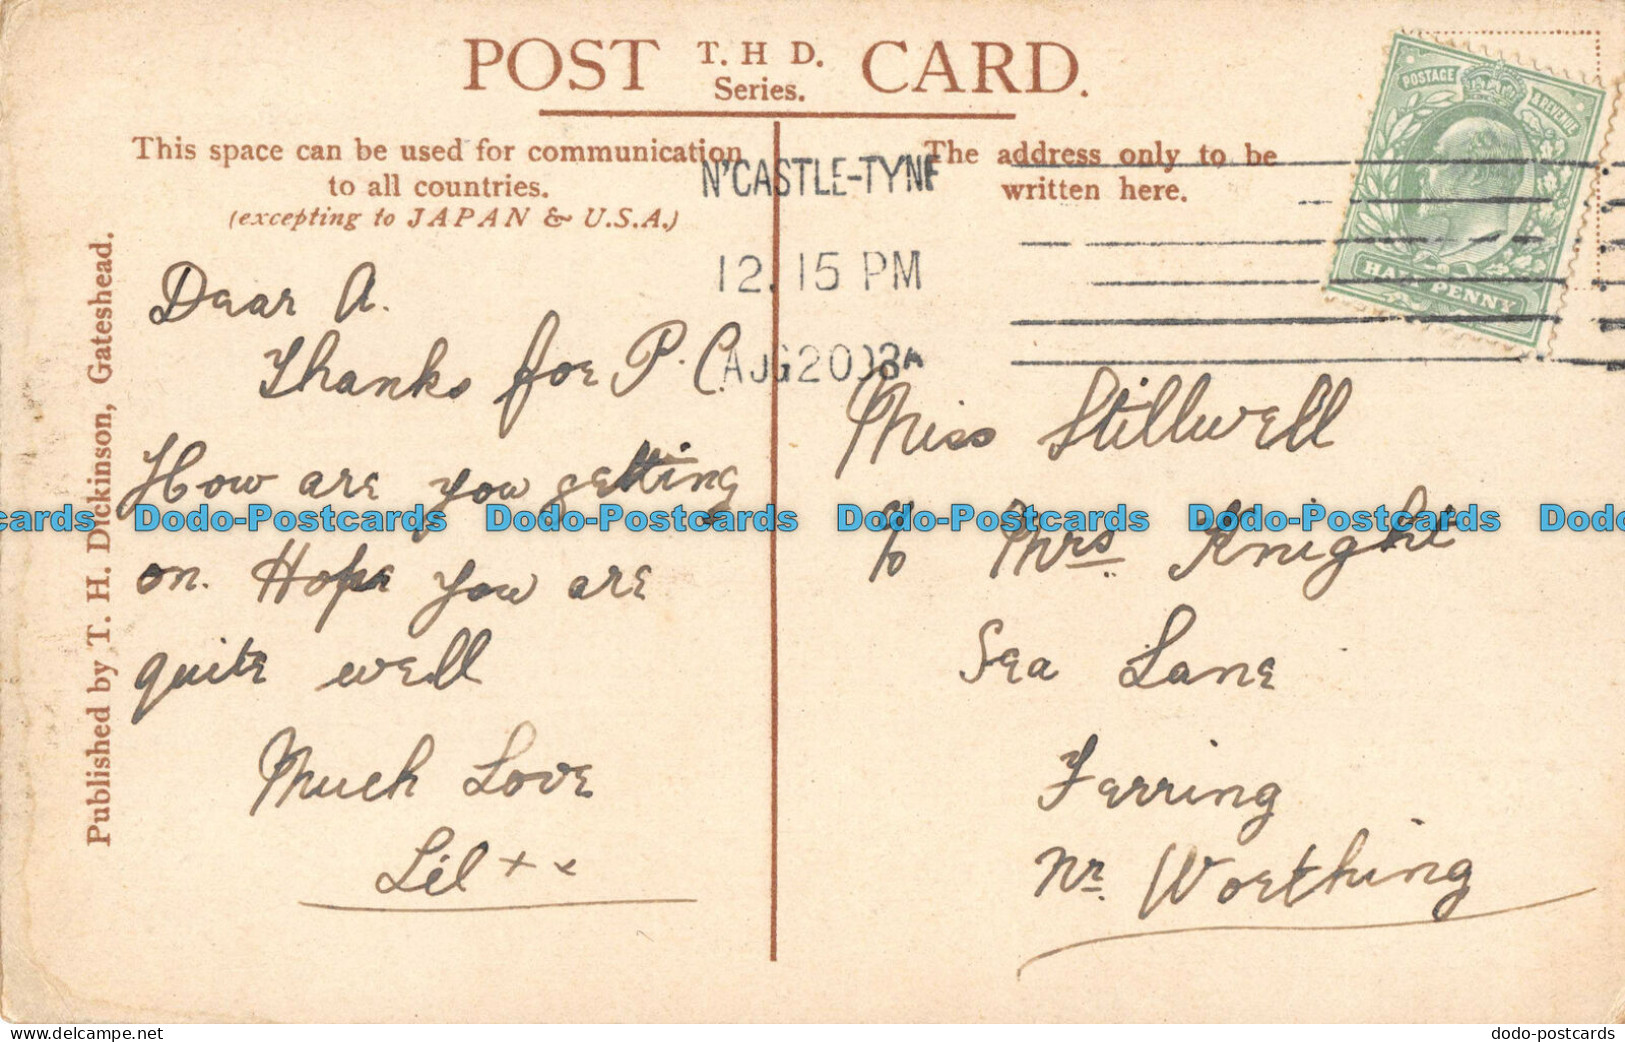 POST T. H. D. Series. CARD.
This space can be used for communication
to all countries.
(excepting to JAPAN & U.S.A.)
The address only to be
written here.
POSTAGE & REVENUE
HALF PENNY
N'CASTLE-TYNE
12.15 PM
AUG 20 08
Published by T. H. Dickinson, Gateshead.
Dear A.
Thanks for P.C.
How are you getting
on. Hope you are
quite well
Much Love
Lil + + x
Miss Stillwell
c/o Mrs Knight
Sea Lane
Ferring
Nr. Worthing
cards Dodo-Postcards Dodo-Postcards Dodo-Postcards Dodo-Postcards Dodo
www.delcampe.net
dodo-postcards